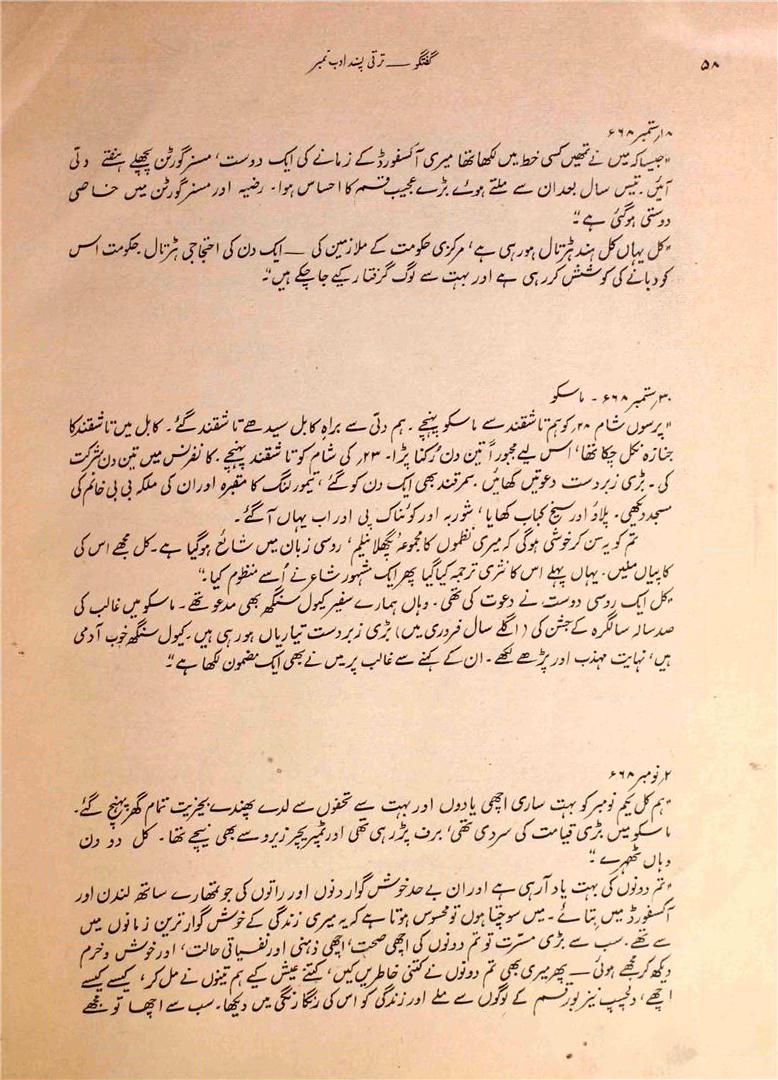 گفتگو — ترقی پسند ادب نمبر
۵۸
۱۸ ستمبر ۶۶۸
"جیسا کہ میں نے تمھیں کسی خط میں لکھا تھا میری آکسفورڈ کے زمانے کی ایک دوست، مسز گورٹن پچھلے ہفتے دتی
آئیں۔ تیس سال بعد ان سے ملتے ہوئے بڑے عجیب قسم کا احساس ہوا۔ رضیہ اور مسز گورٹن میں خاصی
دوستی ہو گئی ہے"
"کل یہاں کل ہند ہڑتال ہو رہی ہے، مرکزی حکومت کے ملازمین کی — ایک دن کی احتجاجی ہڑتال۔ حکومت اس
کو دبانے کی کوشش کر رہی ہے اور بہت سے لوگ گرفتار کیے جا چکے ہیں"۔
۳۰ ستمبر ۶۶۸ - ماسکو
"پرسوں شام ۲۸ کو ہم تاشقند سے ماسکو پہنچے۔ ہم دتی سے براہِ کابل سیدھے تاشقند گئے۔ کابل میں تاشقند کا
جہاز نکل چکا تھا، اس لیے مجبوراً تین دن رُکنا پڑا۔ ۲۳ کی شام کو تاشقند پہنچے۔ کانفرنس میں تین دن شرکت
کی۔ بڑی زبردست دعوتیں کھائیں۔ سمرقند بھی ایک دن کو گئے، تیمور لنگ کا مقبرہ اور ان کی ملکہ بی بی خانم کی
مسجد دیکھی۔ پلاؤ اور سیخ کباب کھایا، شوربہ اور کونیاک پی اور اب یہاں آ گئے۔
تم کو یہ سن کر خوشی ہوگی کہ میری نظموں کا مجموعہ پگھلا نیلم، روسی زبان میں شائع ہو گیا ہے۔ کل مجھے اس کی
کاپیاں ملیں۔ یہاں پہلے اس کا نثری ترجمہ کیا گیا پھر ایک مشہور شاعر نے اُسے منظوم کیا۔"
"کل ایک روسی دوست نے دعوت کی تھی۔ وہاں ہمارے سفیر کیول سنگھ بھی مدعو تھے۔ ماسکو میں غالب کی
صد سالہ سالگرہ کے جشن کی (اگلے سال فروری میں) بڑی زبردست تیاریاں ہو رہی ہیں۔ کیول سنگھ خوب آدمی
ہیں، نہایت مہذب اور پڑھے لکھے۔ ان کے کہنے سے غالب پر میں نے بھی ایک مضمون لکھا ہے"۔
۲ نومبر ۶۶۸
"ہم کل یکم نومبر کو بہت ساری اچھی یادوں اور بہت سے تحفوں سے لدے پھندے بخیریت تمام گھر پہنچ گئے۔
ماسکو میں بڑی قیامت کی سردی تھی، برف پڑ رہی تھی اور ٹمپریچر زیرو سے بھی نیچے تھا۔ کل دو دن
وہاں ٹھہرے"
"تم دونوں کی بہت یاد آ رہی ہے اور ان بے حد خوش گوار دنوں اور راتوں کی جو تمھارے ساتھ لندن اور
آکسفورڈ میں بتائے۔ میں سوچتا ہوں تو محسوس ہوتا ہے کہ یہ میری زندگی کے خوش گوار ترین زمانوں میں
سے تھے۔ سب سے بڑی مسرت تو تم دونوں کی اچھی صحت، اچھی ذہنی اور نفسیاتی حالت، اور خوش و خرم
دیکھ کر مجھے ہوئی — پھر میری بھی تم دونوں نے کتنی خاطریں کیں، کتنے عیش کیے ہم تینوں نے مل کر، کیسے کیسے
اچھے، دلچسپ نیز بور قسم کے لوگوں سے ملے اور زندگی کو اس کی رنگارنگی میں دیکھا۔ سب سے اچھا تو مجھے